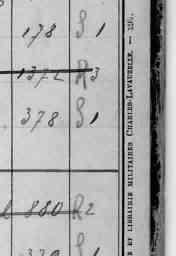 178 S 1
1372 R 3
378 S 1
880 R 2
E ET LIBRAIRIE MILITAIRES CHARLES-LAVAUZELLE. — 126.